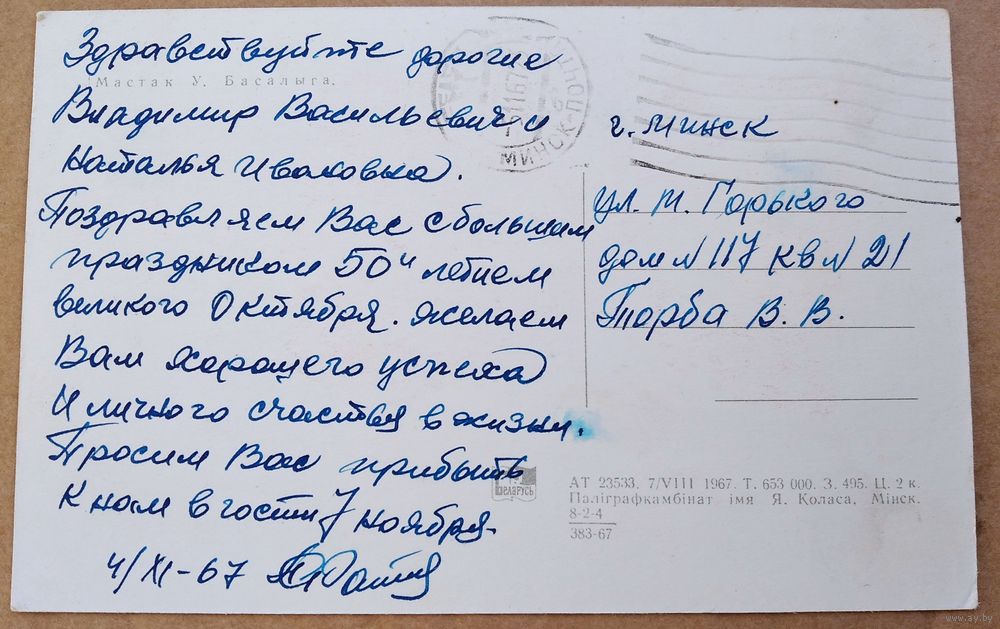 Здравствуйте дорогие
Мастак У. Басалыга.
Владимир Васильевич и
Наталья Ивановна.
Поздравляем Вас с большим
праздником 50и летием
великого Октября. желаем
Вам хорошего успеха
И личного счастья в жизни.
Просим Вас прибыть
К нам в гости 7 ноября.
4/XI-67
МИНСК-ПОЧТ
г. Минск
ул. М. Горького
дом N 117 кв N 21
Торба В. В.
Беларусь
АТ 23533. 7/VIII 1967. Т. 653 000. З. 495. Ц. 2 к.
Паліграфкамбінат імя Я. Коласа, Мінск.
8-2-4
383-67
www.ay.by